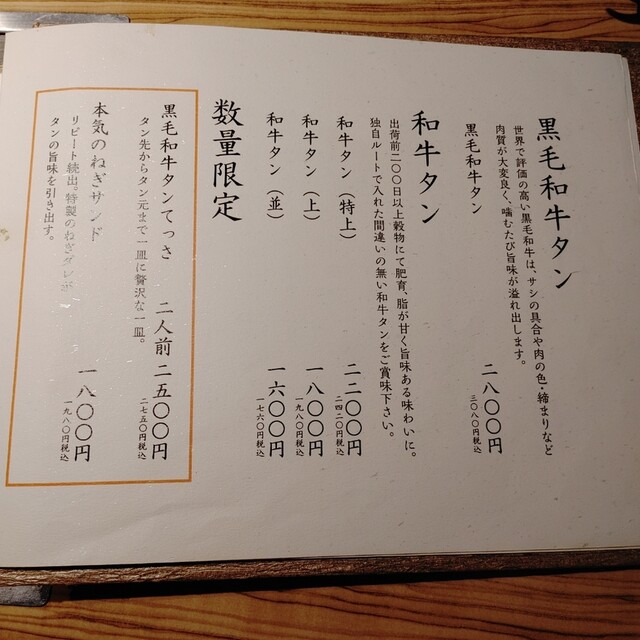 黒毛和牛タン
世界で評価の高い黒毛和牛は、サシの具合や肉の色・締まりなど
肉質が大変良く、噛むたび旨味が溢れ出します。
黒毛和牛タン 二八〇〇円
三〇八〇円税込
和牛タン
出荷前二〇〇日以上穀物にて肥育、脂が甘く旨味ある味わいに。
独自ルートで入れた間違いの無い和牛タンをご賞味下さい。
和牛タン（特上） 二二〇〇円
二四二〇円税込
和牛タン（上） 一八〇〇円
一九八〇円税込
和牛タン（並） 一六〇〇円
一七六〇円税込
数量限定
黒毛和牛タンてっさ 二人前 二五〇〇円
タン先からタン元まで一皿に贅沢な一皿。
二七五〇円税込
本気のねぎサンド 一八〇〇円
リピート続出。特製のねぎダレが
タンの旨味を引き出す。
一九八〇円税込